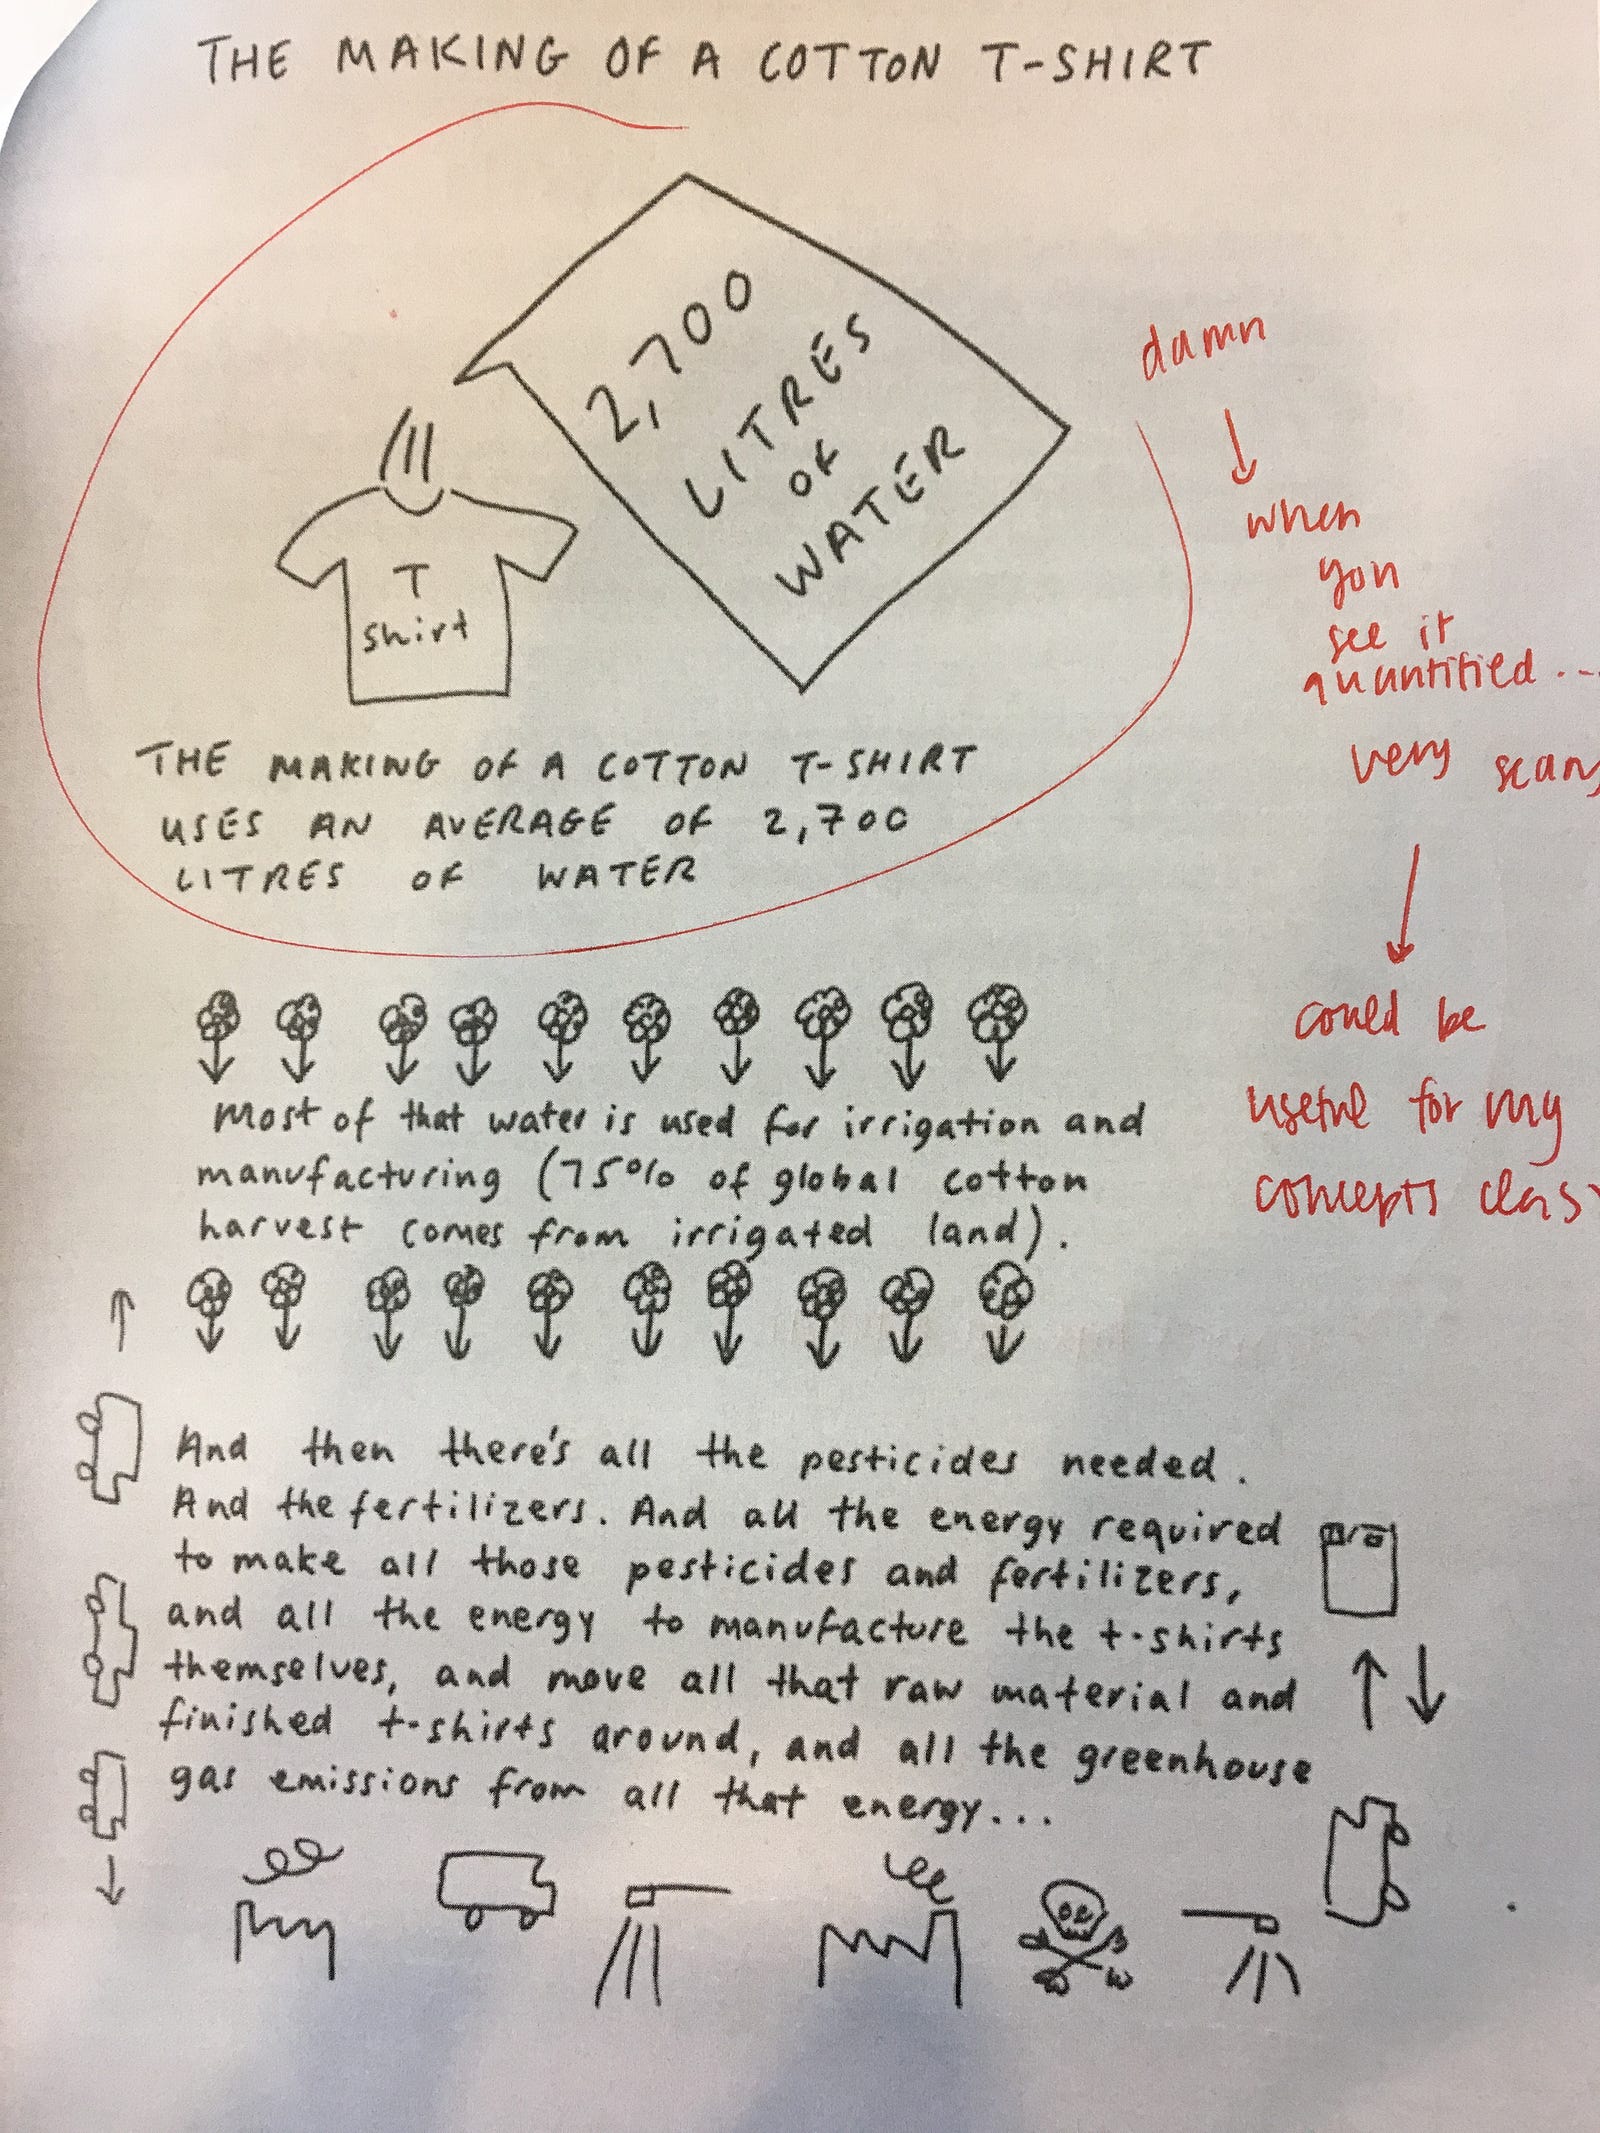 THE MAKING OF A COTTON T-SHIRT
2,700
LITRES
OF
WATER
T
shirt
THE MAKING OF A COTTON T-SHIRT
USES AN AVERAGE OF 2,700
LITRES OF WATER
damn
when
you
see it
quantified...
very scary
could be
useful for my
concepts class
Most of that water is used for irrigation and
manufacturing (75% of global cotton
harvest comes from irrigated land).
And then there's all the pesticides needed.
And the fertilizers. And all the energy required
to make all those pesticides and fertilizers,
and all the energy to manufacture the t-shirts
themselves, and move all that raw material and
finished t-shirts around, and all the greenhouse
gas emissions from all that energy...